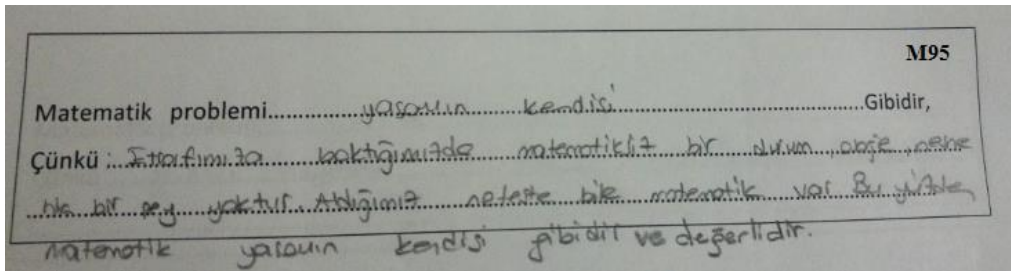 M95
Matematik problemi.........yaşamın.........kendisi.........Gibidir,
Çünkü : Etrafımıza baktığımızda matematiksiz bir durum, obje, nene
bir şey yoktur. Aldığımız nefeste bile matematik var. Bu yüzden
matematik yaşamın kendisi gibidir ve değerlidir.